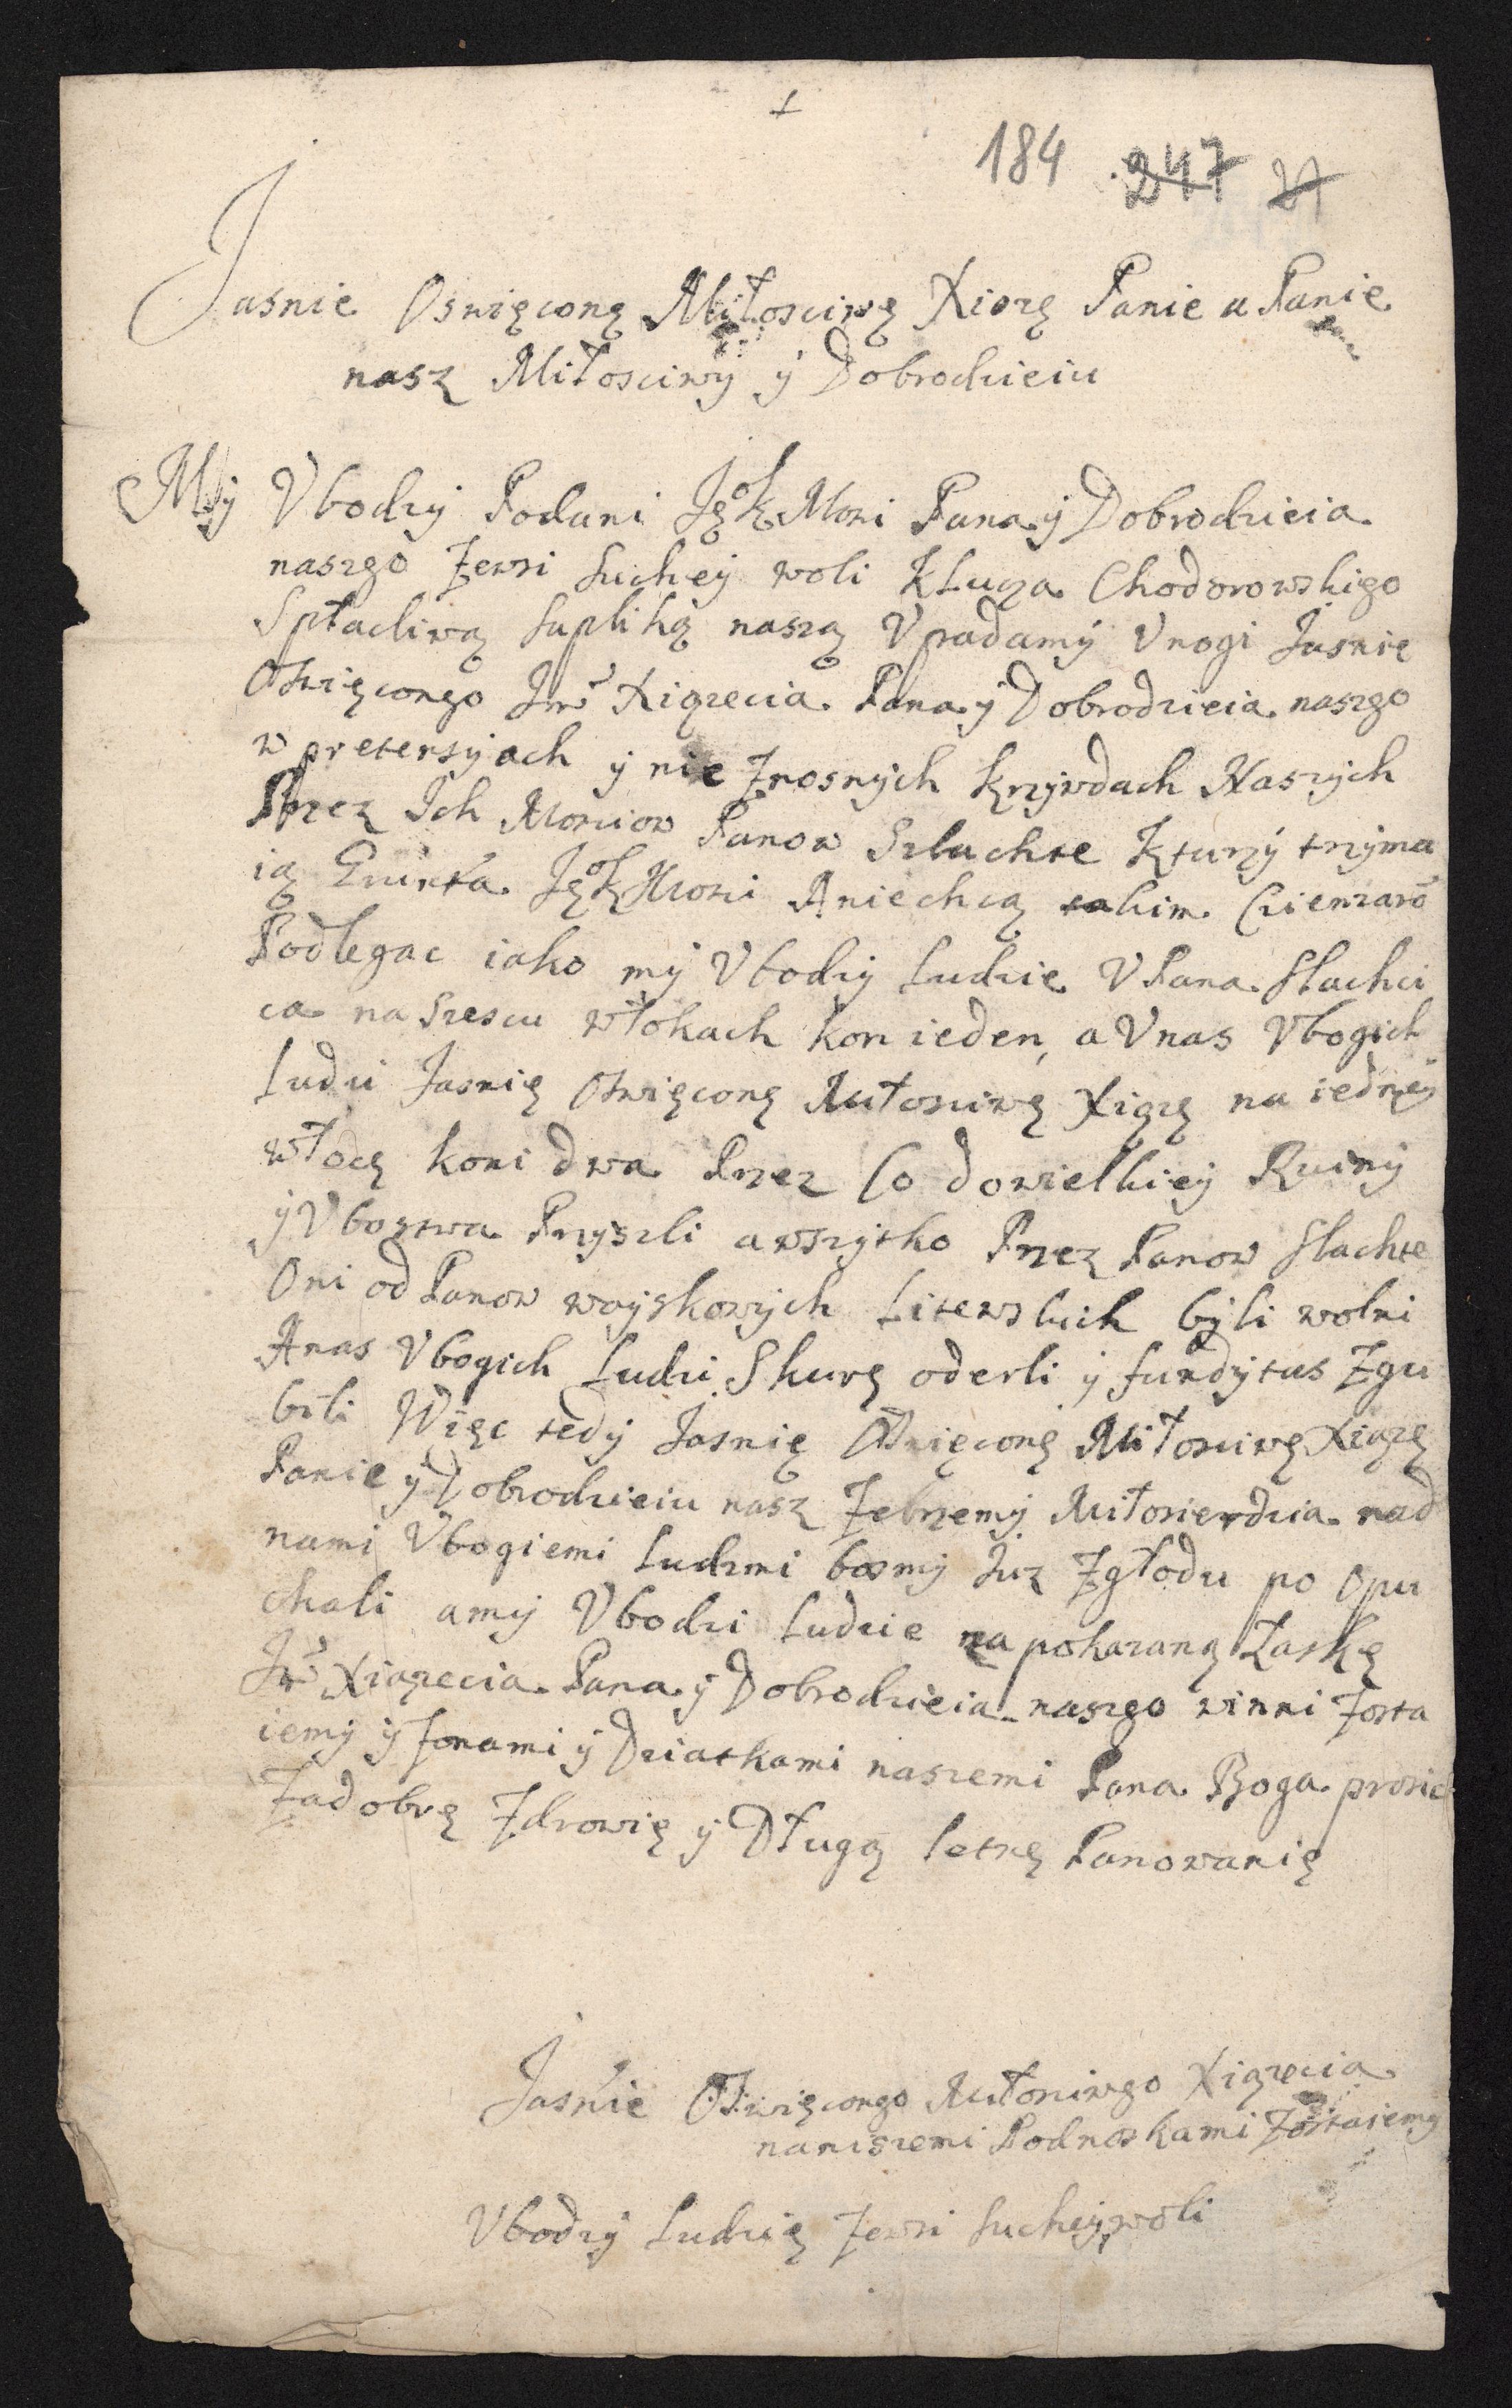 184 247 27
Jasnie Oswięconę Miłosciwę Xiązę Panie a Panie
nasz Miłosciwy ÿ Dobrodzieiu
Mÿ Vbodzÿ Podani Ję k Mosci Pana ÿ Dobrodzieia
naszgo Zewsi Suchey woli Klucza Chodorowskigo
Spłacliwą Supliką naszą Vpadamÿ Vnogi Jasnię
Oswięcongo Jmci Xiązecia Pana ÿ Dobrodzieia naszgo
w pretensÿiach ÿ nie Znosnÿch Krzÿwdach Naszÿch
Przez Ich Mosciow Panow Szlachte Kturzÿ trzÿma
ią Grunta Ję k Mosci A niechcą takim Cięzaro
Podlegac iako mÿ Vbodzÿ Ludzie V Pana Slachci
ca na Szesciu włokach kon ieden, a Vnas Vbogich
Ludzi Jasnię Oswięconę Miłosciwę Xiązę na iedneÿ
włocę koni dwa Przez Co dowielkieÿ Ruinÿ
ÿ Vbostwa Przÿszli awszÿtko Przez Panow Slachte
Oni od Panow woÿskowÿch Litewskich bÿli wolni
Anas Vbogich Ludzi Skurę oderli ÿ fundÿtus Zgu
bili Więc tedÿ Jasnię Oswięconę Miłosciwę Xiązę
Panie ÿ Dobrodzieiu nasz Zebrzemÿ Miłosierdzia nad
nami Vbogiemi Ludzmi bosmÿ Juz Zgłodu po Opu
chali amÿ Vbodzi Ludzie za pokazaną Łaskę
Jmci Xiązecia Pana ÿ Dobrodzieia naszgo winni Zosta
iemÿ ÿ Zonami ÿ Dziatkami naszemi Pana Boga prosic
Zadobrę Zdrowię ÿ Długą letnę Panowanię
Jasnie Oswięcongo Miłosciwgo Xiązecia
naniszemi Podnoskami Zostaiemy
Vbodzÿ Ludzię Zewsi Sucheÿ woli